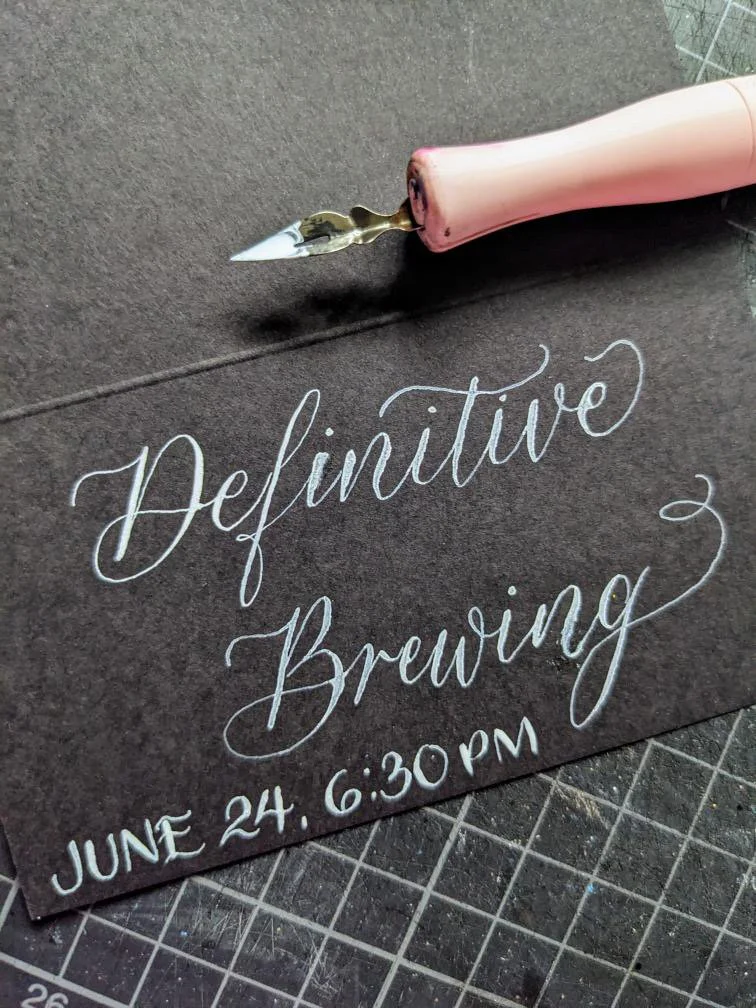 Definitive
Brewing
JUNE 24, 6:30 PM
26